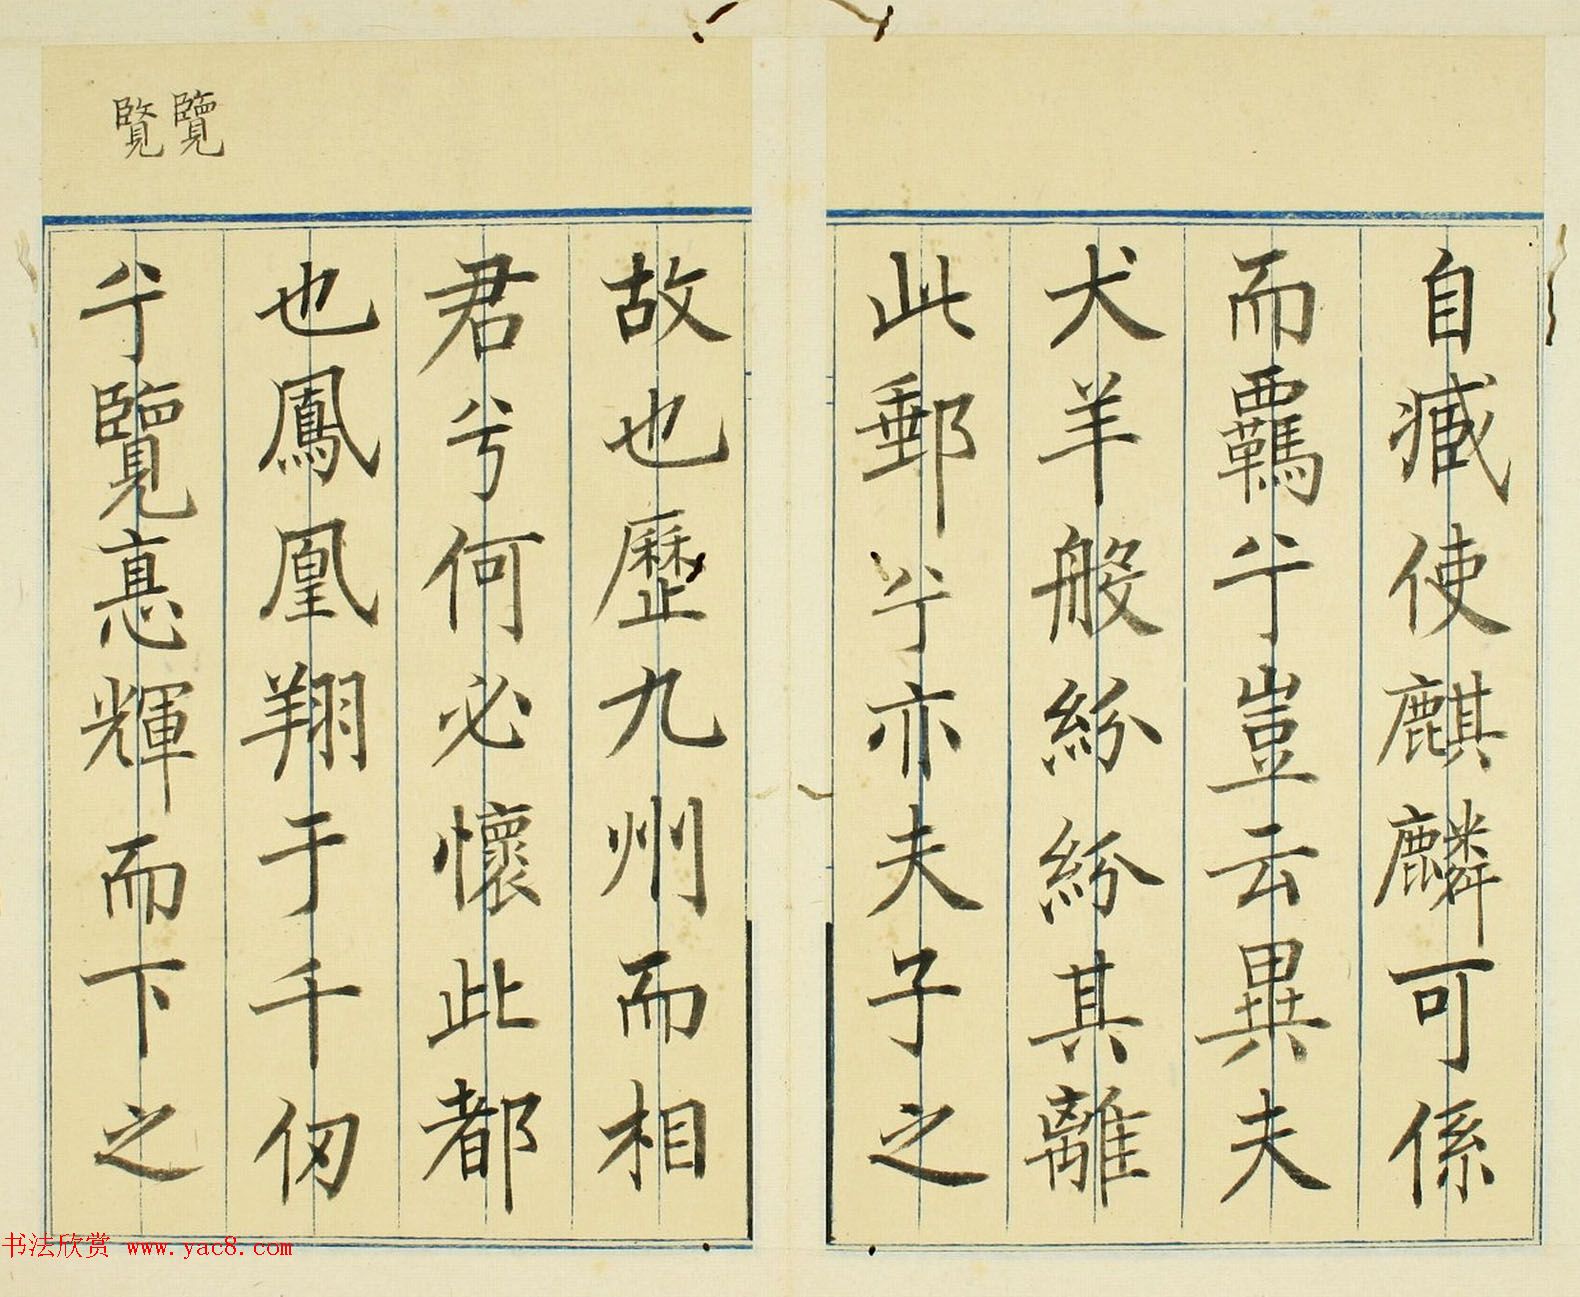 覽覧
自臧使麒麟可係
而羈兮豈云異夫
犬羊般紛紛其離
此郵兮亦夫子之
故也歷九州而相
君兮何必懷此都
也鳳凰翔于千仞
兮覽悳輝而下之
书法欣赏 www.yac8.com